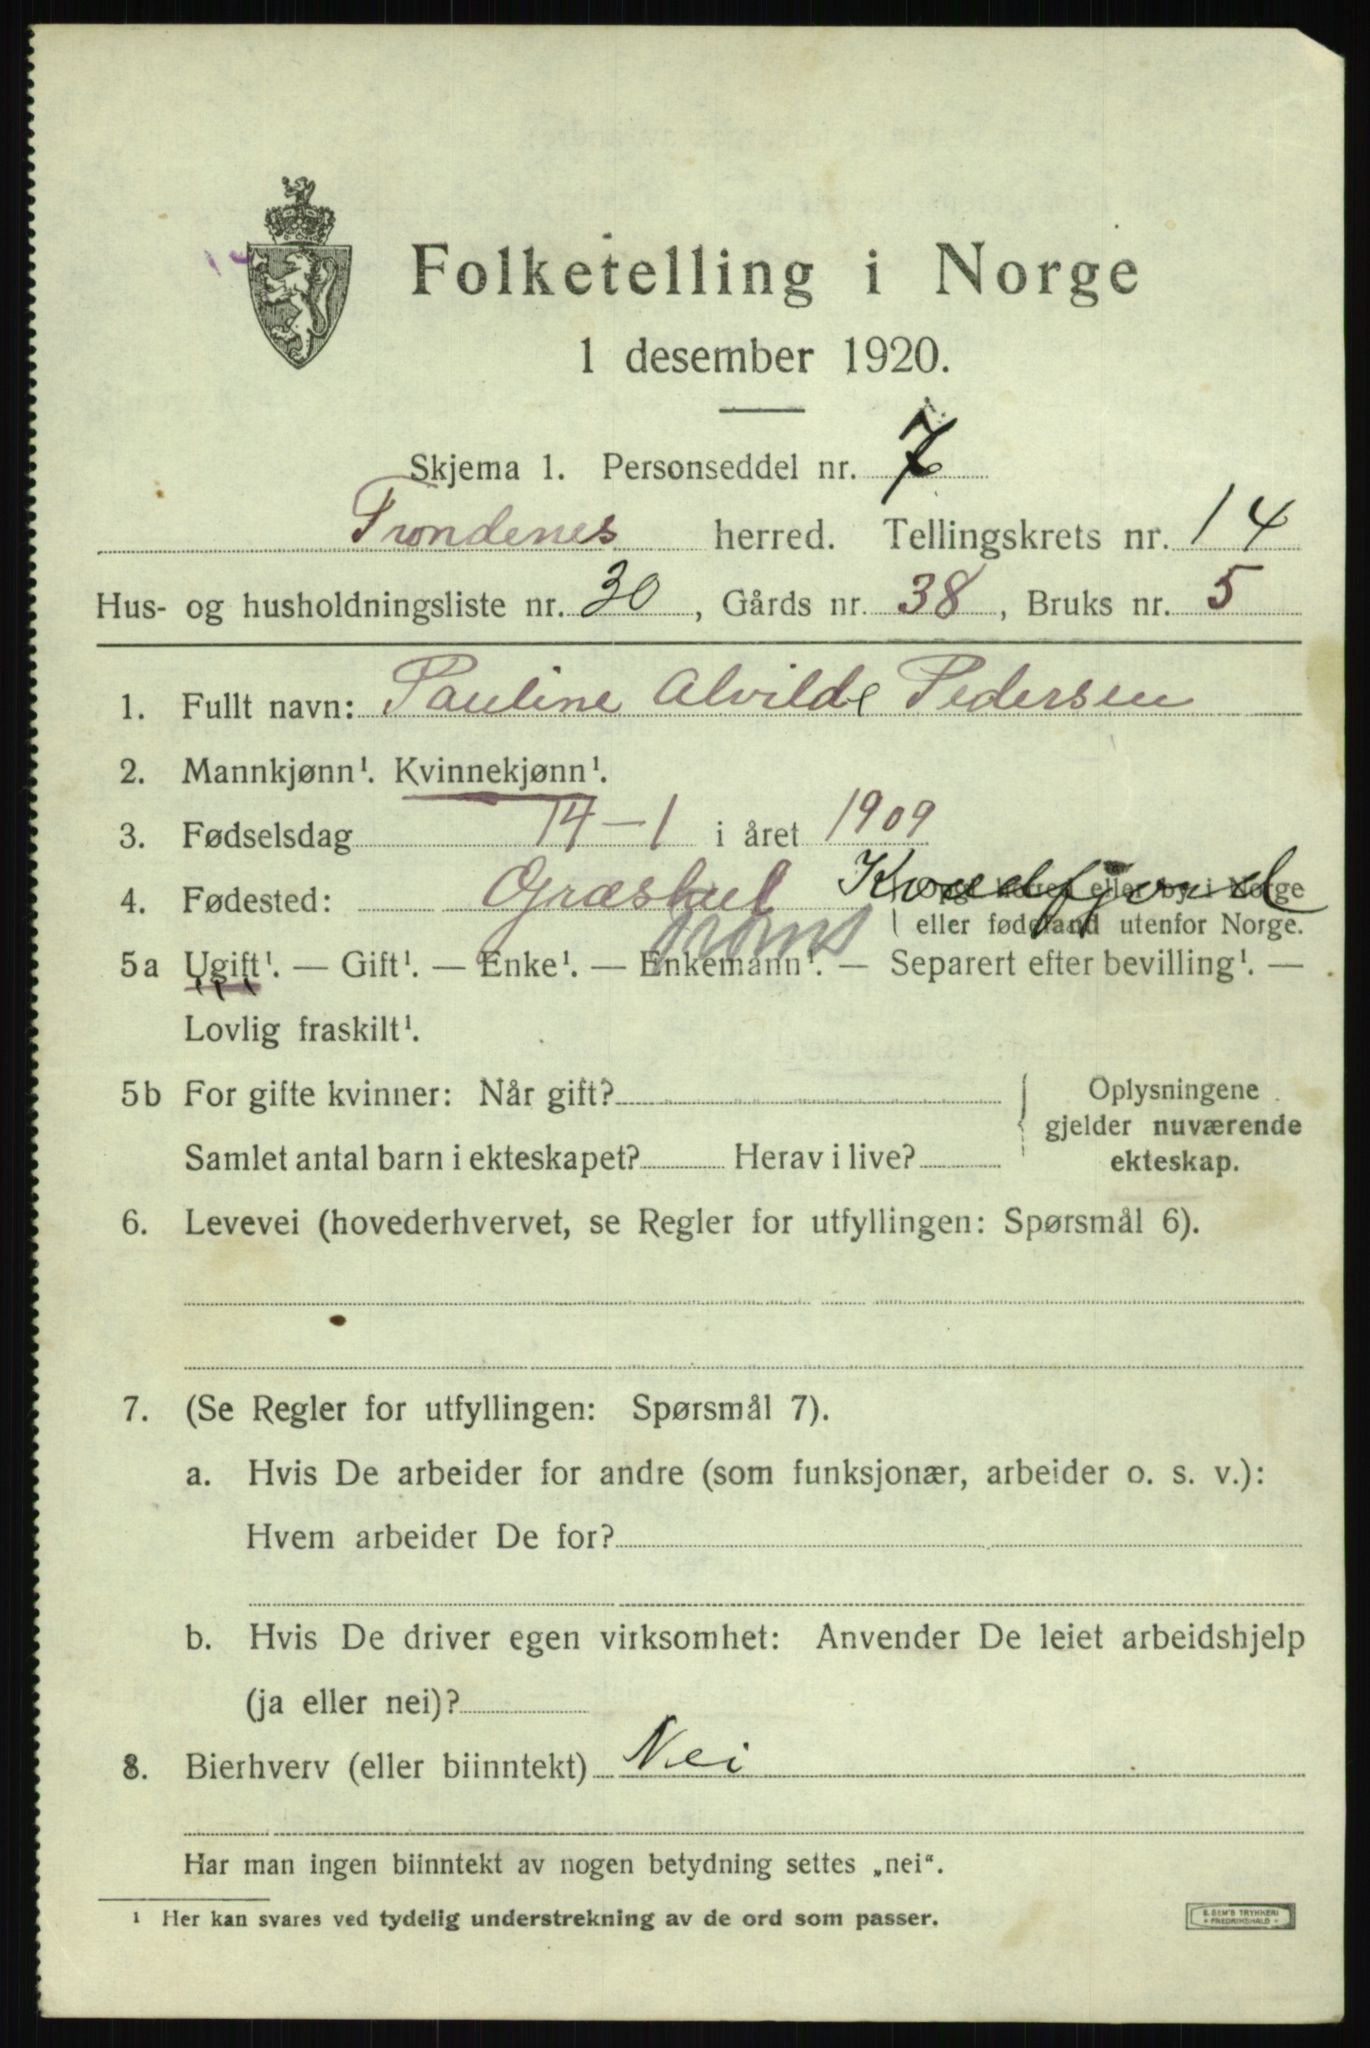 Folketelling i Norge
1 desember 1920.
Skjema 1. Personseddel nr. 7
Trondenes herred. Tellingskrets nr. 14
Hus- og husholdningsliste nr. 30, Gårds nr. 38, Bruks nr. 5
1. Fullt navn: Pauline Alvilde Pedersen
2. Mannkjønn¹. Kvinnekjønn¹.
3. Fødselsdag 14-1 i året 1909
4. Fødested: eller by i Norge
eller fødeland utenfor Norge.
Troms
5a Ugift¹. — Gift¹. — Enke¹. — Enkemann¹. — Separert efter bevilling¹. —
Lovlig fraskilt¹.
5b For gifte kvinner: Når gift?
Samlet antal barn i ekteskapet? Herav i live?
Oplysningene
gjelder nuværende
ekteskap.
6. Levevei (hovederhvervet, se Regler for utfyllingen: Spørsmål 6).
7. (Se Regler for utfyllingen: Spørsmål 7).
a. Hvis De arbeider for andre (som funksjonær, arbeider o. s. v.):
Hvem arbeider De for?
b. Hvis De driver egen virksomhet: Anvender De leiet arbeidshjelp
(ja eller nei)?
8. Bierhverv (eller biinntekt) Nei
Har man ingen biinntekt av nogen betydning settes „nei“.
¹ Her kan svares ved tydelig understrekning av de ord som passer.
TRYKKERI
FREDRIKSHALD